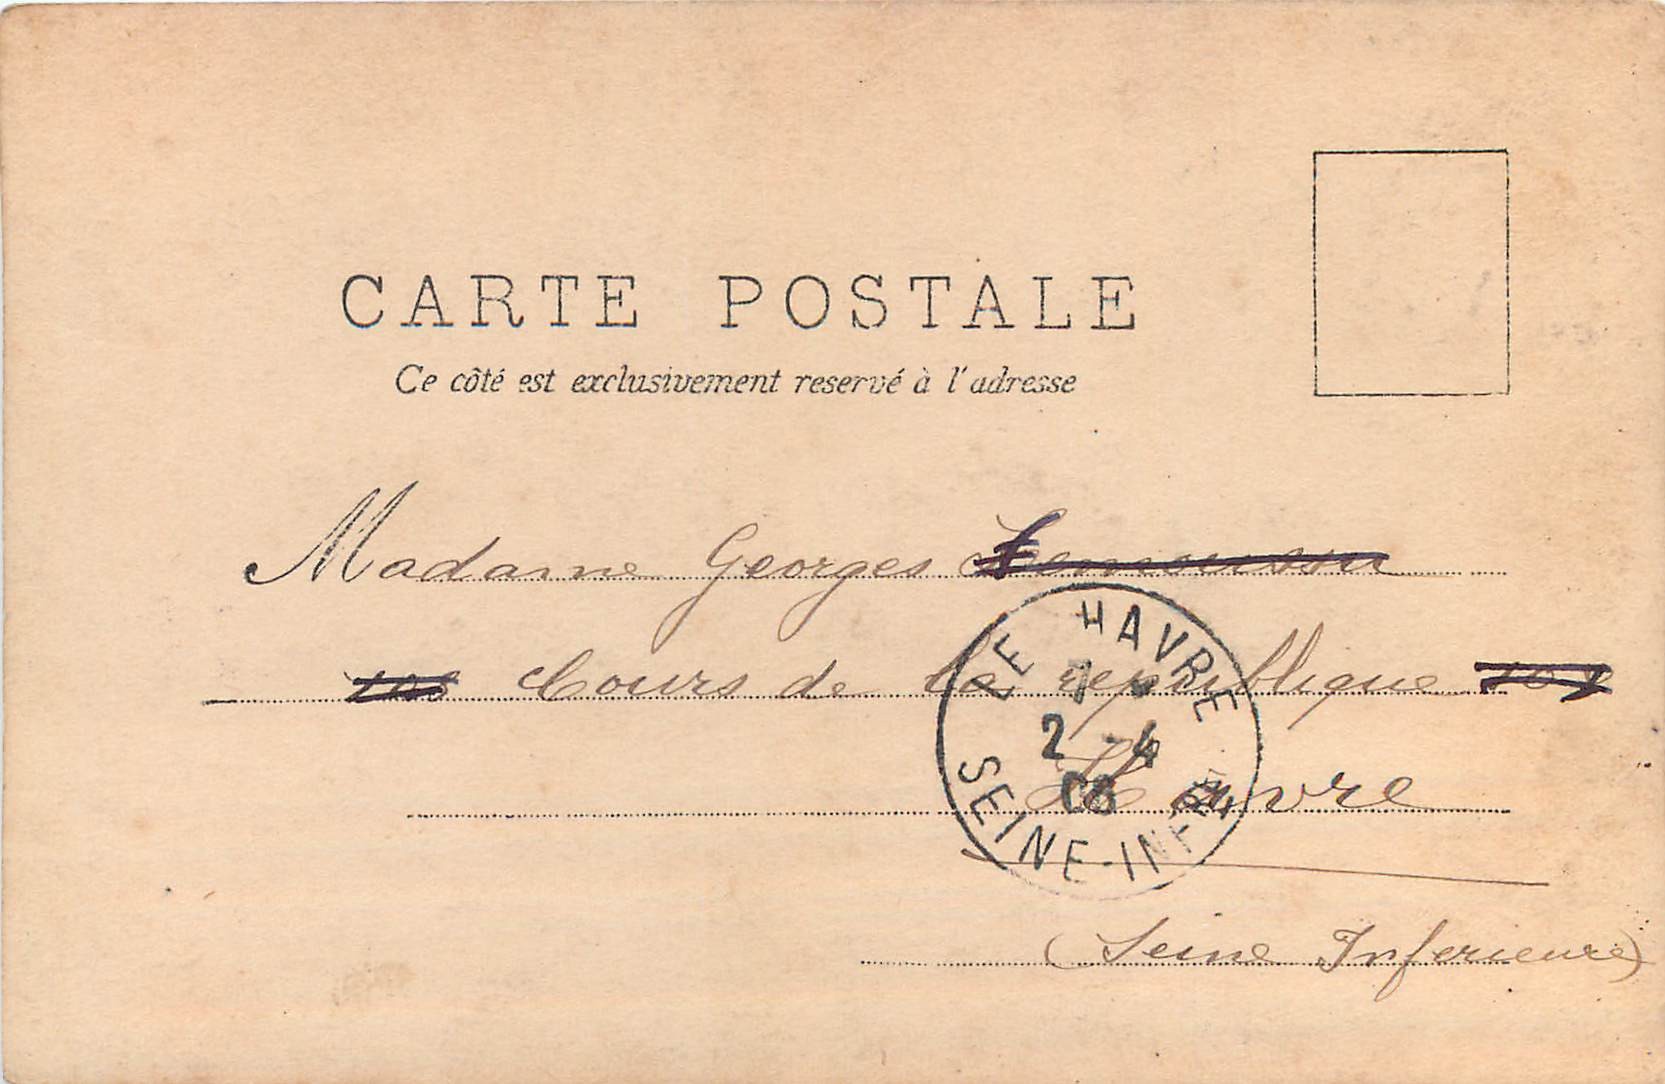 CARTE POSTALE
Ce côté est exclusivement reservé à l'adresse
Madame Georges
Cours de la republique
Havre
(Seine Inferieure)
LE HAVRE
7
2 - 4
08
SEINE-INFRE